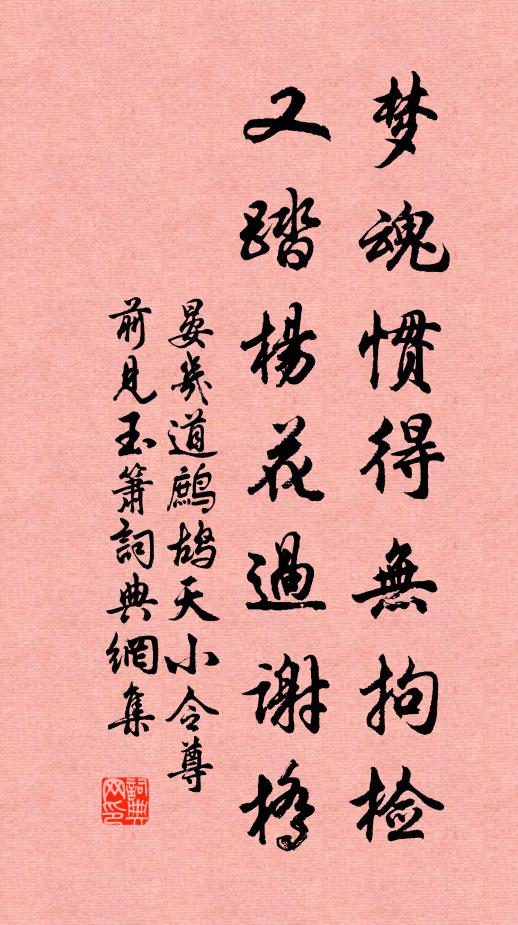 梦魂惯得無拘检
又踏楊花過谢橋
晏幾道鷓鴣天小令尊
前見玉簫詞典網集
詞典网印